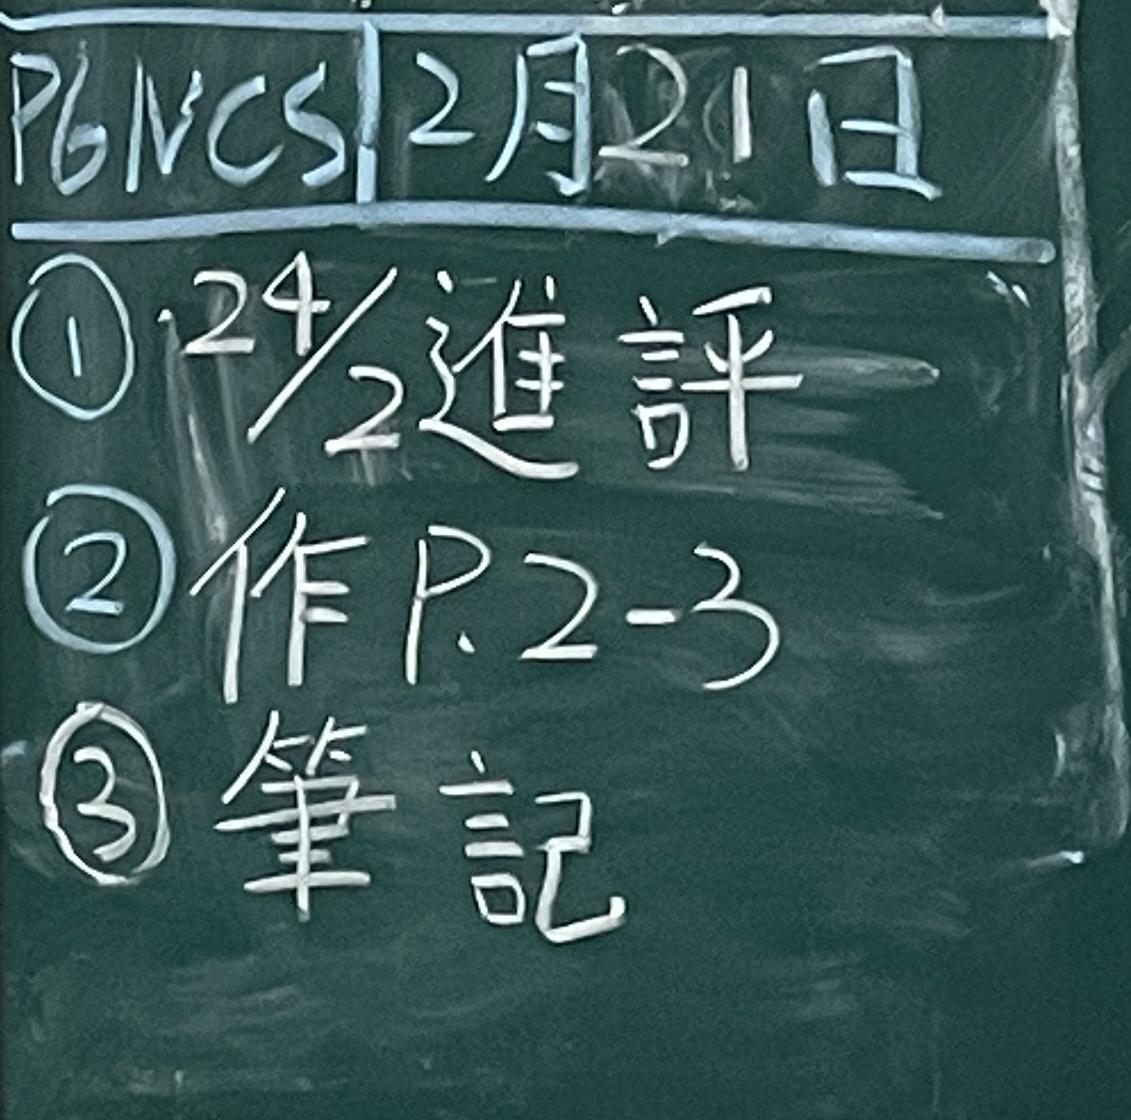 P6NCS 2月21日
① 24/2進評
② 作P.2-3
③ 筆記